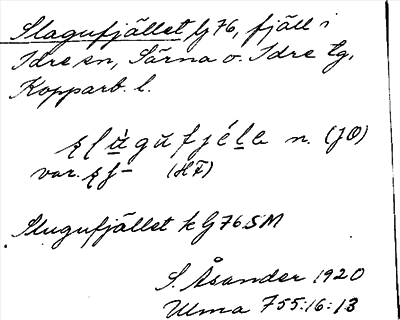 Slagufjället G 76, fjäll i
Idre sn, Särna o. Idre tg,
Kopparb. l.
n. (JO)
var. (HF)
Slugufjället k G 76 SM
S. Åsander 1920
Ulma 755:16:13